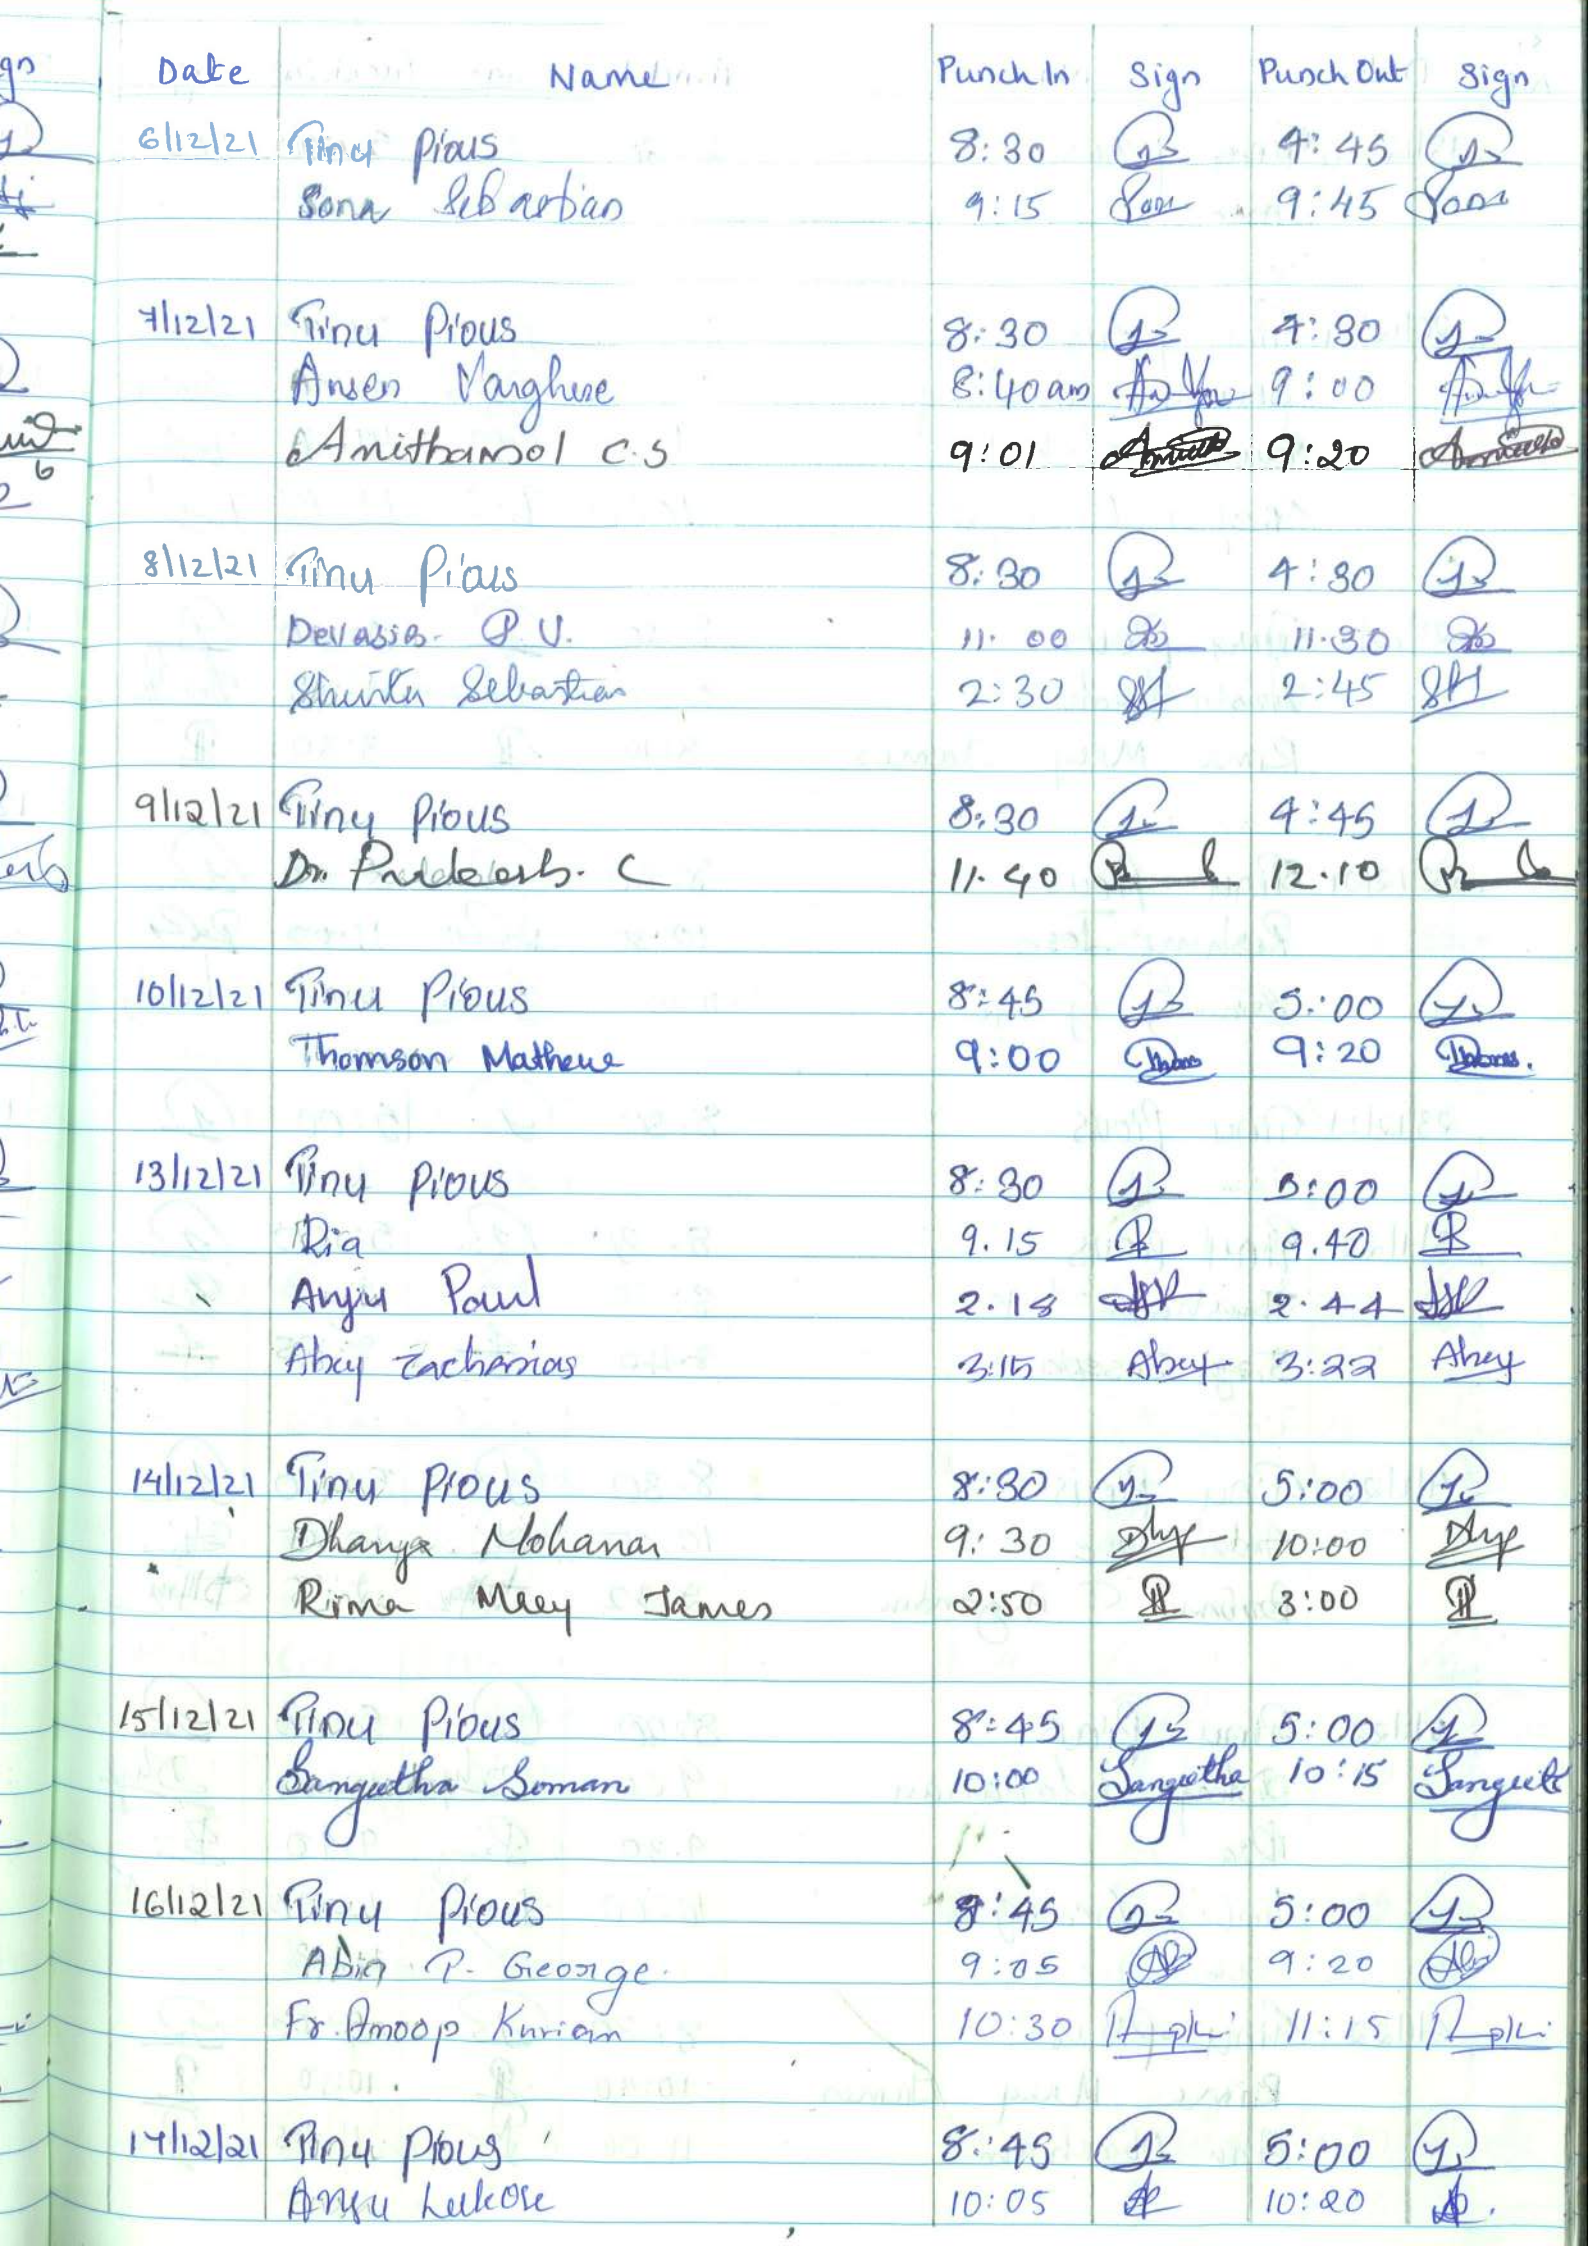 Date Name Punch In Sign Punch Out Sign
6/12/21 Tinu Pious 8:30 4:45
Sona Sebastian 9:15 Sona 9:45 Sona
7/12/21 Tinu Pious 8:30 4:30
Ansen Varghese 8:40am 9:00
Anithamol C.S 9:01 9:20
8/12/21 Tinu Pious 8:30 4:30
Devasia P.V. 11.00 11.30
Sebastian 2:30 2:45
9/12/21 Tinu Pious 8:30 4:45
Dr. C 11.40 12.10
10/12/21 Tinu Pious 8:45 5:00
Thomson Mathew 9:00 9:20
13/12/21 Tinu Pious 8:30 5:00
Ria 9.15 9.40
Anju Paul 2.18 2.44
Abey Zacharias 3:15 Abey 3:22 Abey
14/12/21 Tinu Pious 8:30 5:00
Dhanya Mohanan 9:30 10:00
Rima Mary James 2:50 3:00
15/12/21 Tinu Pious 8:45 5:00
Sangeetha Soman 10:00 Sangeetha 10:15
16/12/21 Tinu Pious 8:45 5:00
Abin P. George. 9:05 9:20
Fr. Anoop Kurian 10:30 11:15
17/12/21 Tinu Pious 8:45 5:00
Anju Lukose 10:05 10:20